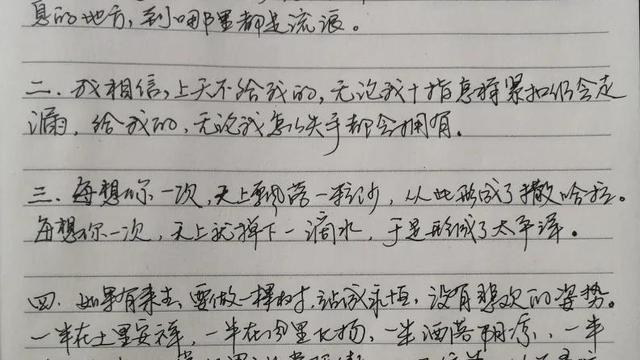 息的地方，到哪里都是流浪。
二．我相信，上天不给我的，无论我十指怎样紧扣仍会走
漏，给我的，无论我怎么失手都会拥有。
三．每想你一次，天上飘落一粒沙，从此形成了撒哈拉。
每想你一次，天上就掉下一滴水，于是形成了太平洋。
四．如果有来生，要做一棵树，站成永恒，没有悲欢的姿势。
一半在土里安详，一半在风里飞扬，一半洒落阴凉，一半